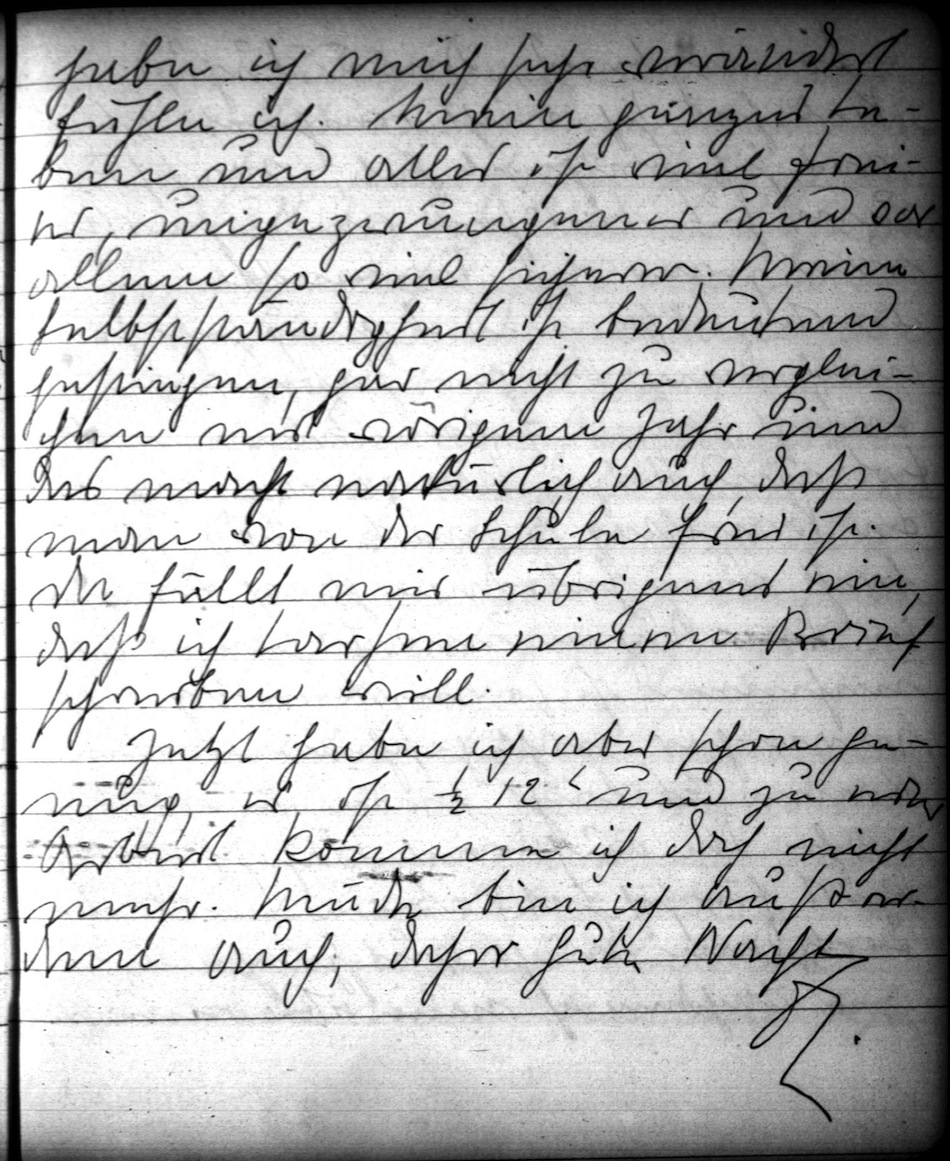 habe ich mich sehr verändert
fühle ich. Mein ganzes Le-
ben und alles ist viel frei-
er, ungezwungener und vor
allem so viel sicherer. Meine
Selbstständigkeit ist bedeutend
gestiegen, gar nicht zu verglei-
chen mit vorigem Jahr und
das macht natürlich auch, daß
man von der Schule frei ist.
Da fällt mir übrigens ein,
daß ich einen Brief
schreiben will.
Jetzt habe ich aber schon ge-
nug, es ist ½ 12 und zu einer
Arbeit komme ich doch nicht
mehr. Müde bin ich außer-
dem auch, daher Gute Nacht